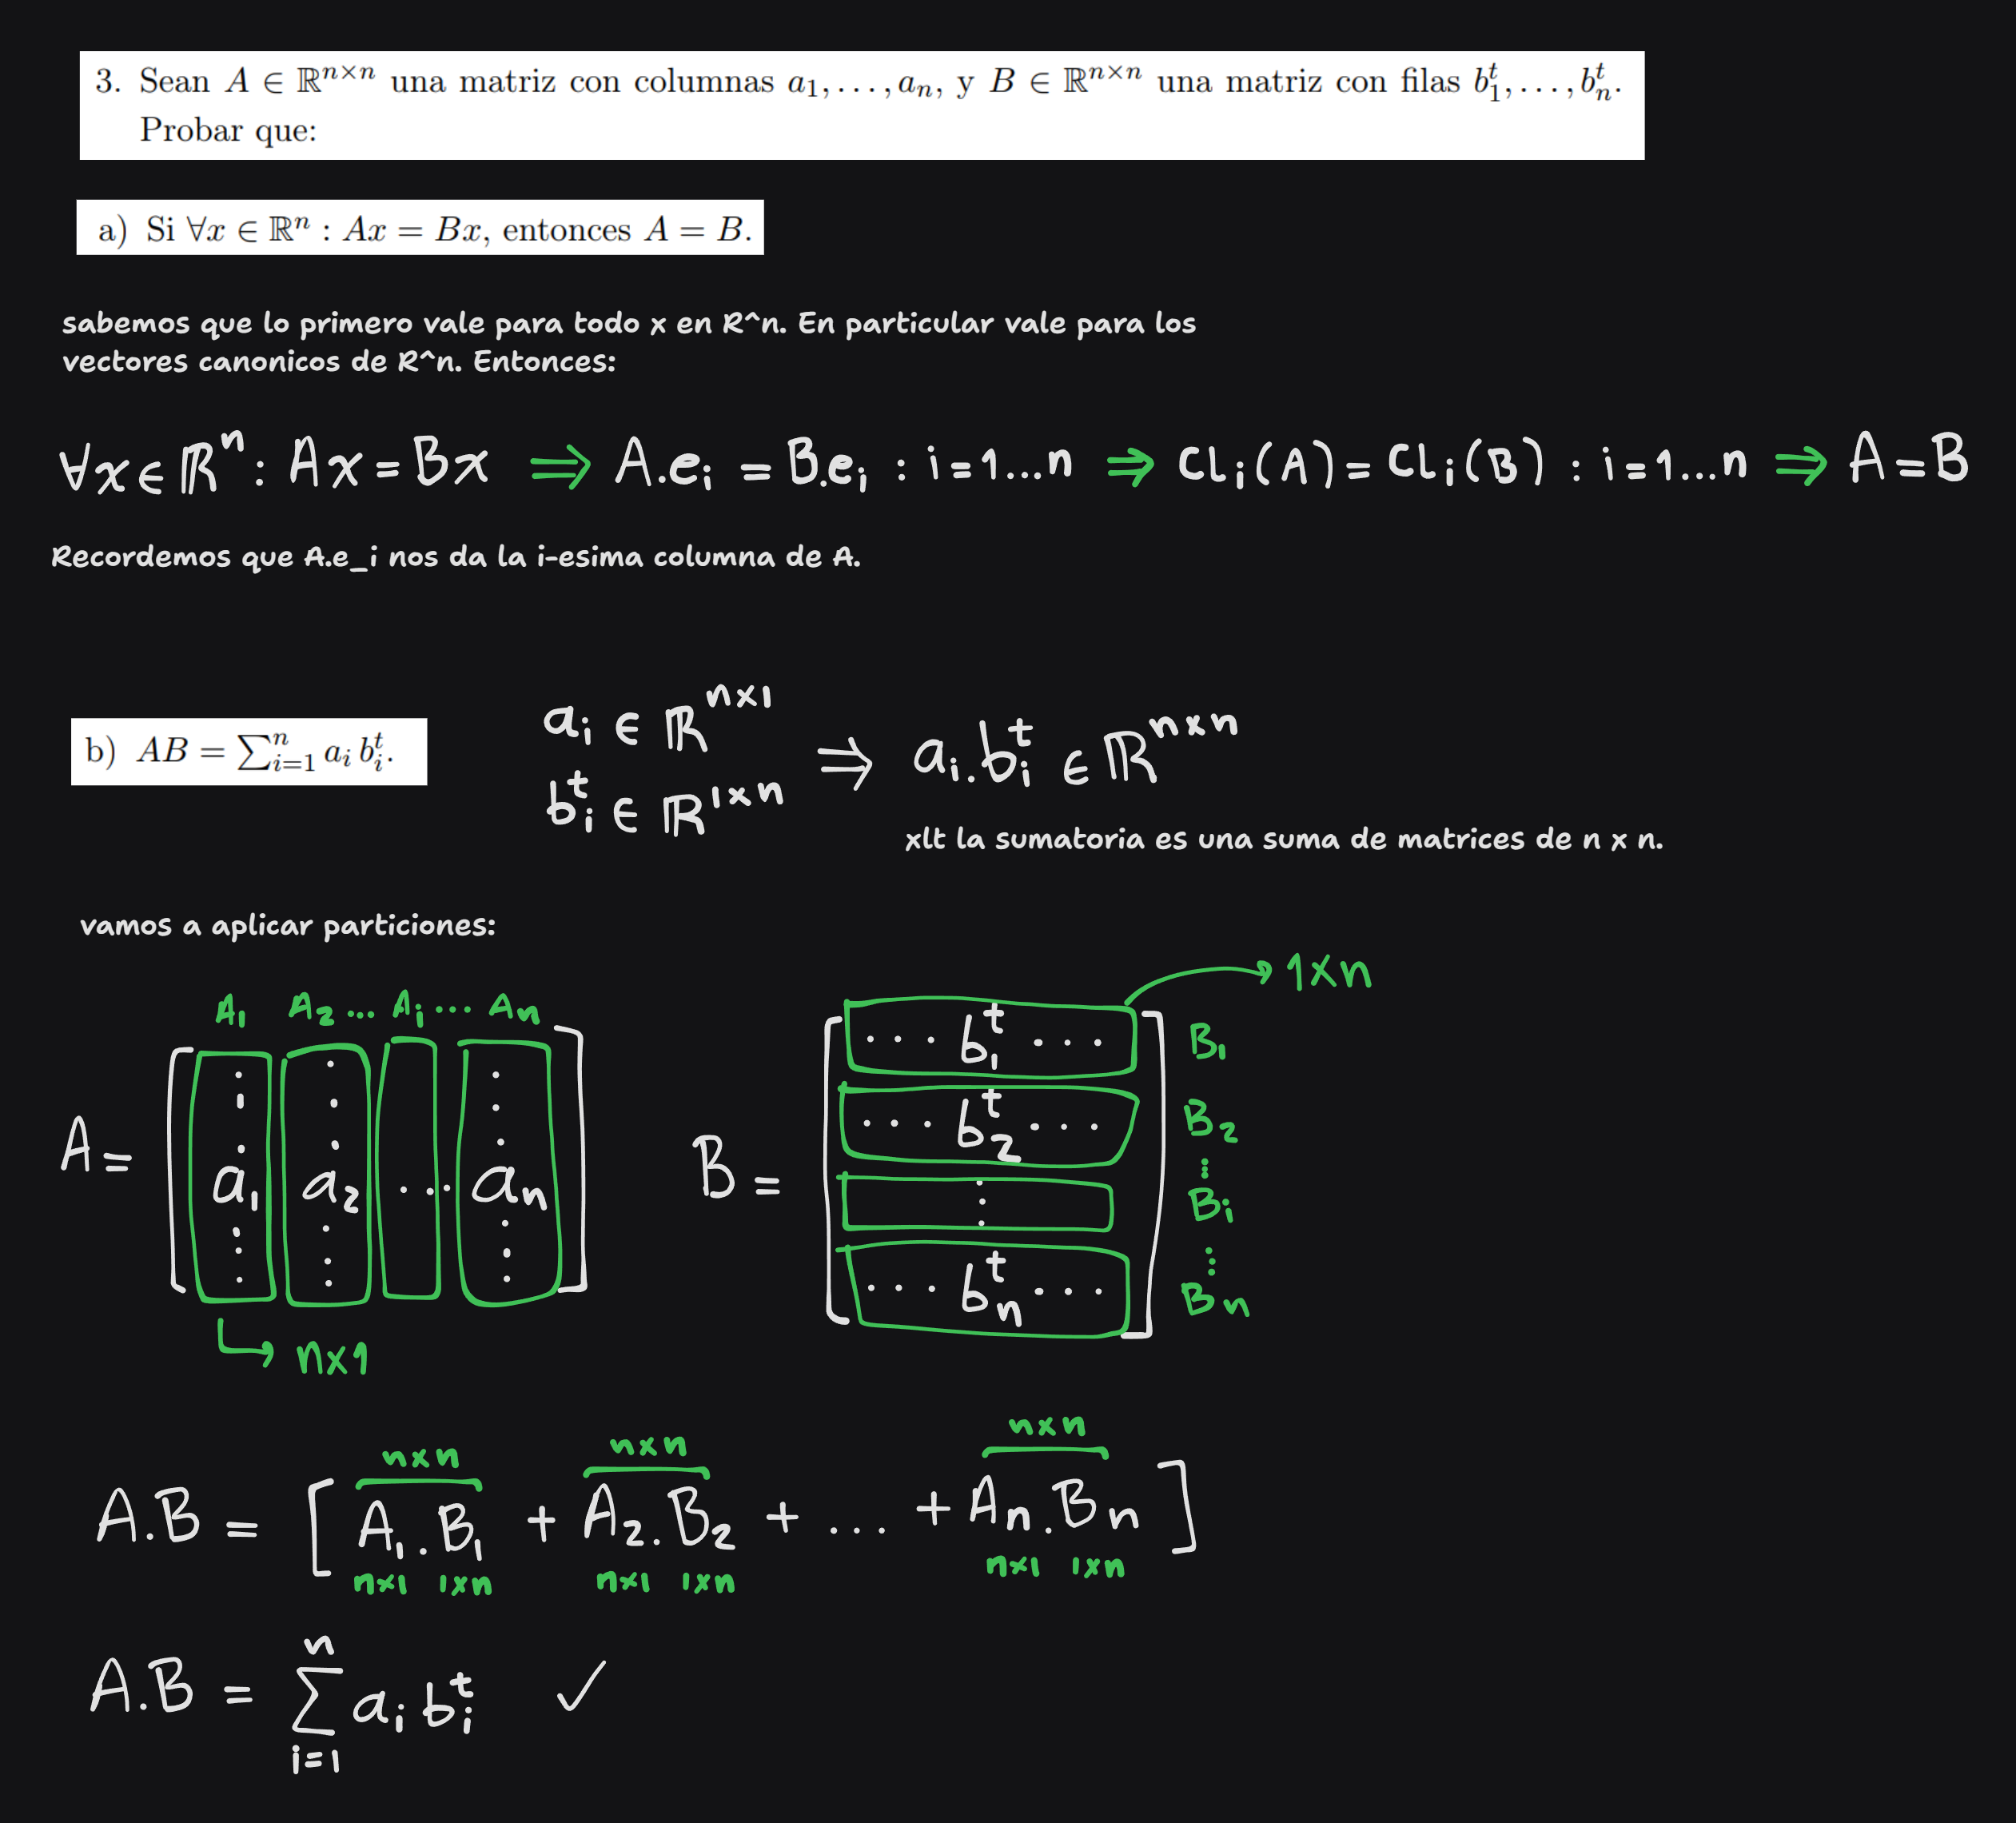 3. Sean A ∈ ℝⁿˣⁿ una matriz con columnas a₁, . . . , aₙ, y B ∈ ℝⁿˣⁿ una matriz con filas b₁ᵗ, . . . , bₙᵗ.
Probar que:
a) Si ∀x ∈ ℝⁿ : Ax = Bx, entonces A = B.
sabemos que lo primero vale para todo x en R^n. En particular vale para los
vectores canonicos de R^n. Entonces:
∀x ∈ ℝⁿ : Ax = Bx ⟹ A.eᵢ = B.eᵢ : i=1...n ⟹ CLᵢ(A) = CLᵢ(B) : i=1...n ⟹ A=B
Recordemos que A.e_i nos da la i-esima columna de A.
b) AB = ∑ⁿᵢ₌₁ aᵢ bᵢᵗ.
aᵢ ∈ ℝⁿˣ¹
bᵢᵗ ∈ ℝ¹ˣⁿ
⟹ aᵢ.bᵢᵗ ∈ ℝⁿˣⁿ
xlt la sumatoria es una suma de matrices de n x n.
vamos a aplicar particiones:
A₁ A₂ ... Aᵢ ... Aₙ
A = [ a₁ a₂ ... aₙ ]
nx1
1xn
B = [ ... b₁ᵗ ... B₁
... b₂ᵗ ... B₂
⋮ Bᵢ
⋮
... bₙᵗ ... ] Bₙ
nxn nxn nxn
A.B = [ A₁.B₁ + A₂.B₂ + ... + Aₙ.Bₙ ]
nx1 1xn nx1 1xn nx1 1xn
A.B = ∑ⁿᵢ₌₁ aᵢ bᵢᵗ ✓